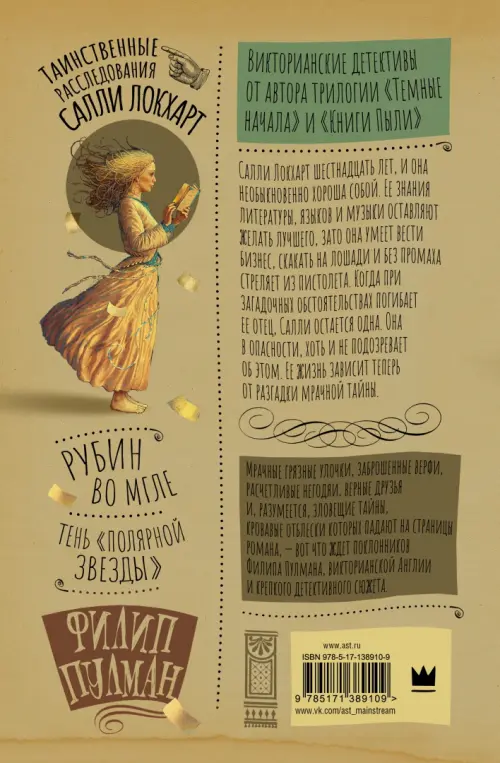 Таинственные
расследования
Салли Локхарт
Рубин
во мгле
Тень «Полярной
звезды»
Филип
Пулман
Викторианские детективы
от автора трилогии «Темные
начала» и «Книги Пыли»
Салли Локхарт шестнадцать лет, и она
необыкновенно хороша собой. Ее знания
литературы, языков и музыки оставляют
желать лучшего, зато она умеет вести
бизнес, скакать на лошади и без промаха
стреляет из пистолета. Когда при
загадочных обстоятельствах погибает
ее отец, Салли остается одна. Она
в опасности, хоть и не подозревает
об этом. Ее жизнь зависит теперь
от разгадки мрачной тайны.
Мрачные грязные улочки, заброшенные верфи,
расчетливые негодяи, верные друзья
и, разумеется, зловещие тайны,
кровавые отблески которых падают на страницы
романа, – вот что ждет поклонников
Филипа Пулмана, викторианской Англии
и крепкого детективного сюжета.
www.ast.ru
ISBN 978-5-17-138910-9
9 785171 389109 >
www.vk.com/ast_mainstream